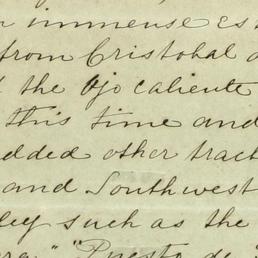 immense es
from Cristobal
the Ojo caliente
this time and
added other tract
and Southwest
ley such as the
" "Puesto de "